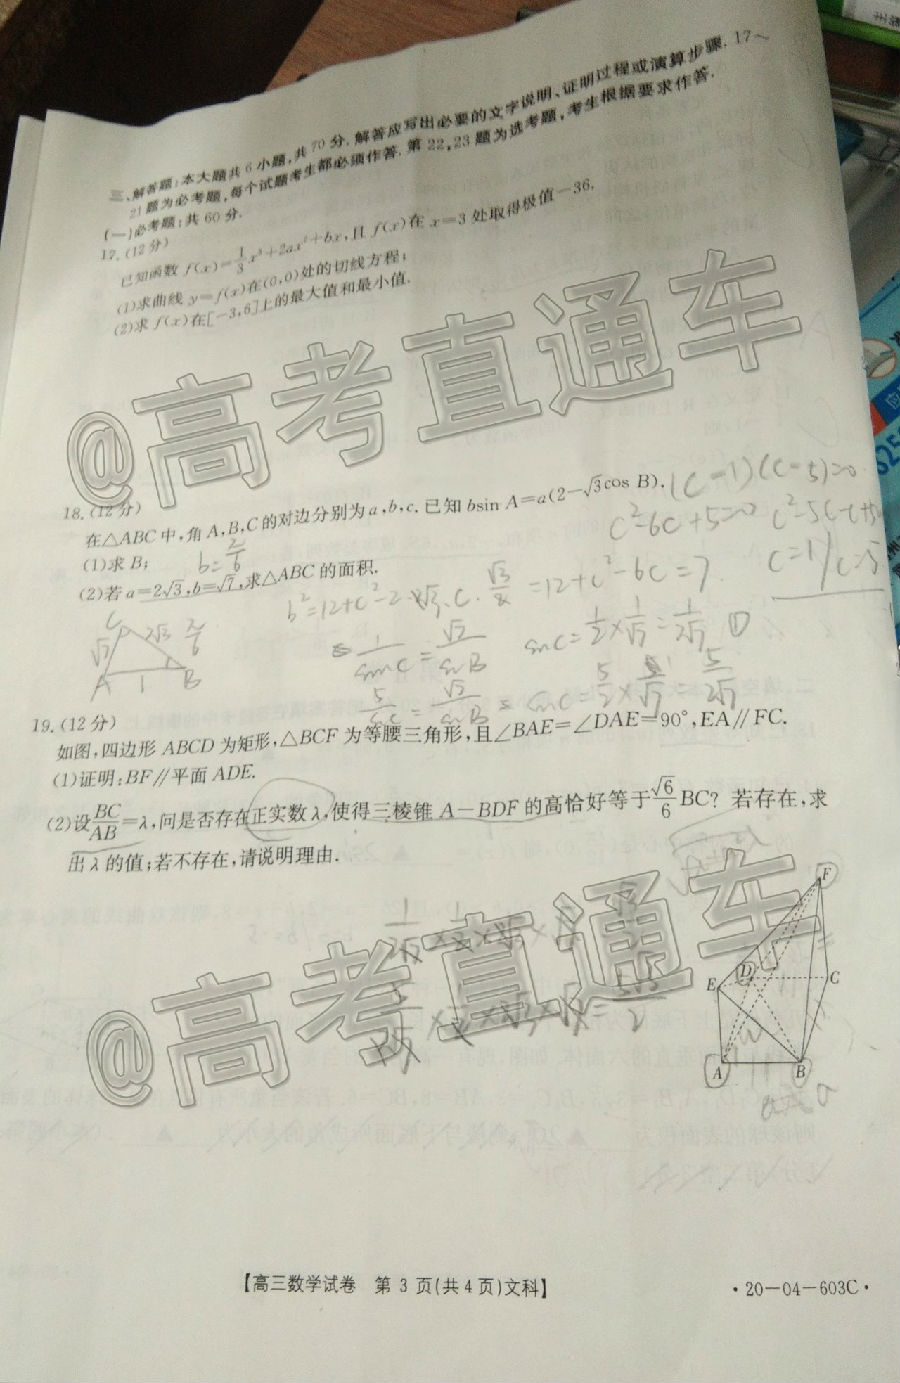 三、解答题:本大题共6小题,共70分.解答应写出必要的文字说明、证明过程或演算步骤.17~
21题为必考题,每个试题考生都必须作答.第22,23题为选考题,考生根据要求作答.
(一)必考题:共60分.
17.(12分)
已知函数f(x)=1/3x³+2ax²+bx,且f(x)在x=3处取得极值-36.
(1)求曲线y=f(x)在(0,0)处的切线方程;
(2)求f(x)在[-3,6]上的最大值和最小值.
@高考直通车
18.(12分)
在△ABC中,角A,B,C的对边分别为a,b,c.已知bsin A=a(2-√3cos B).
(c-1)(c-5)=0
c²-6c+5=0
(1)求B;
(2)若a=2√3,b=√7,求△ABC的面积.
=12+c²-6c=7
19.(12分)
如图,四边形ABCD为矩形,△BCF为等腰三角形,且∠BAE=∠DAE=90°,EA∥FC.
(1)证明:BF∥平面ADE.
(2)设BC/AB=λ,问是否存在正实数λ,使得三棱锥A-BDF的高恰好等于√6/6BC?若存在,求
出λ的值;若不存在,请说明理由.
F
E
D
C
A
B
@高考直通车
【高三数学试卷 第3页(共4页)文科】
·20-04-603C·